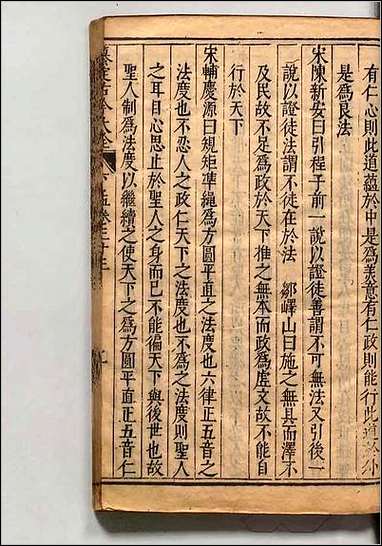 有仁心則此道蘊於中是為美意有仁政則能行此道於外
是為良法
宋陳新安曰引程子前一說以證徒善謂不可無法又引後一
說以證徒法謂不徒在於法 鄒嶧山曰施之無具而澤不
及民故不足為政於天下推之無本而政為虛文故不能自
行於天下
宋輔慶源曰規矩凖繩為方圓平直之法度也六律正五音之
法度也不忍人之政仁天下之法度也不為之法度則聖人
之耳目心思止於聖人之身而已不能徧天下與後世也故
聖人制為法度以繼續之使天下之為方圓平直正五音仁